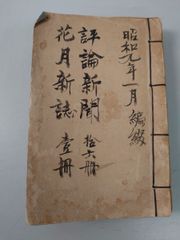 昭和元年一月編綴
評論新聞 拾六冊
花月新誌 壹冊